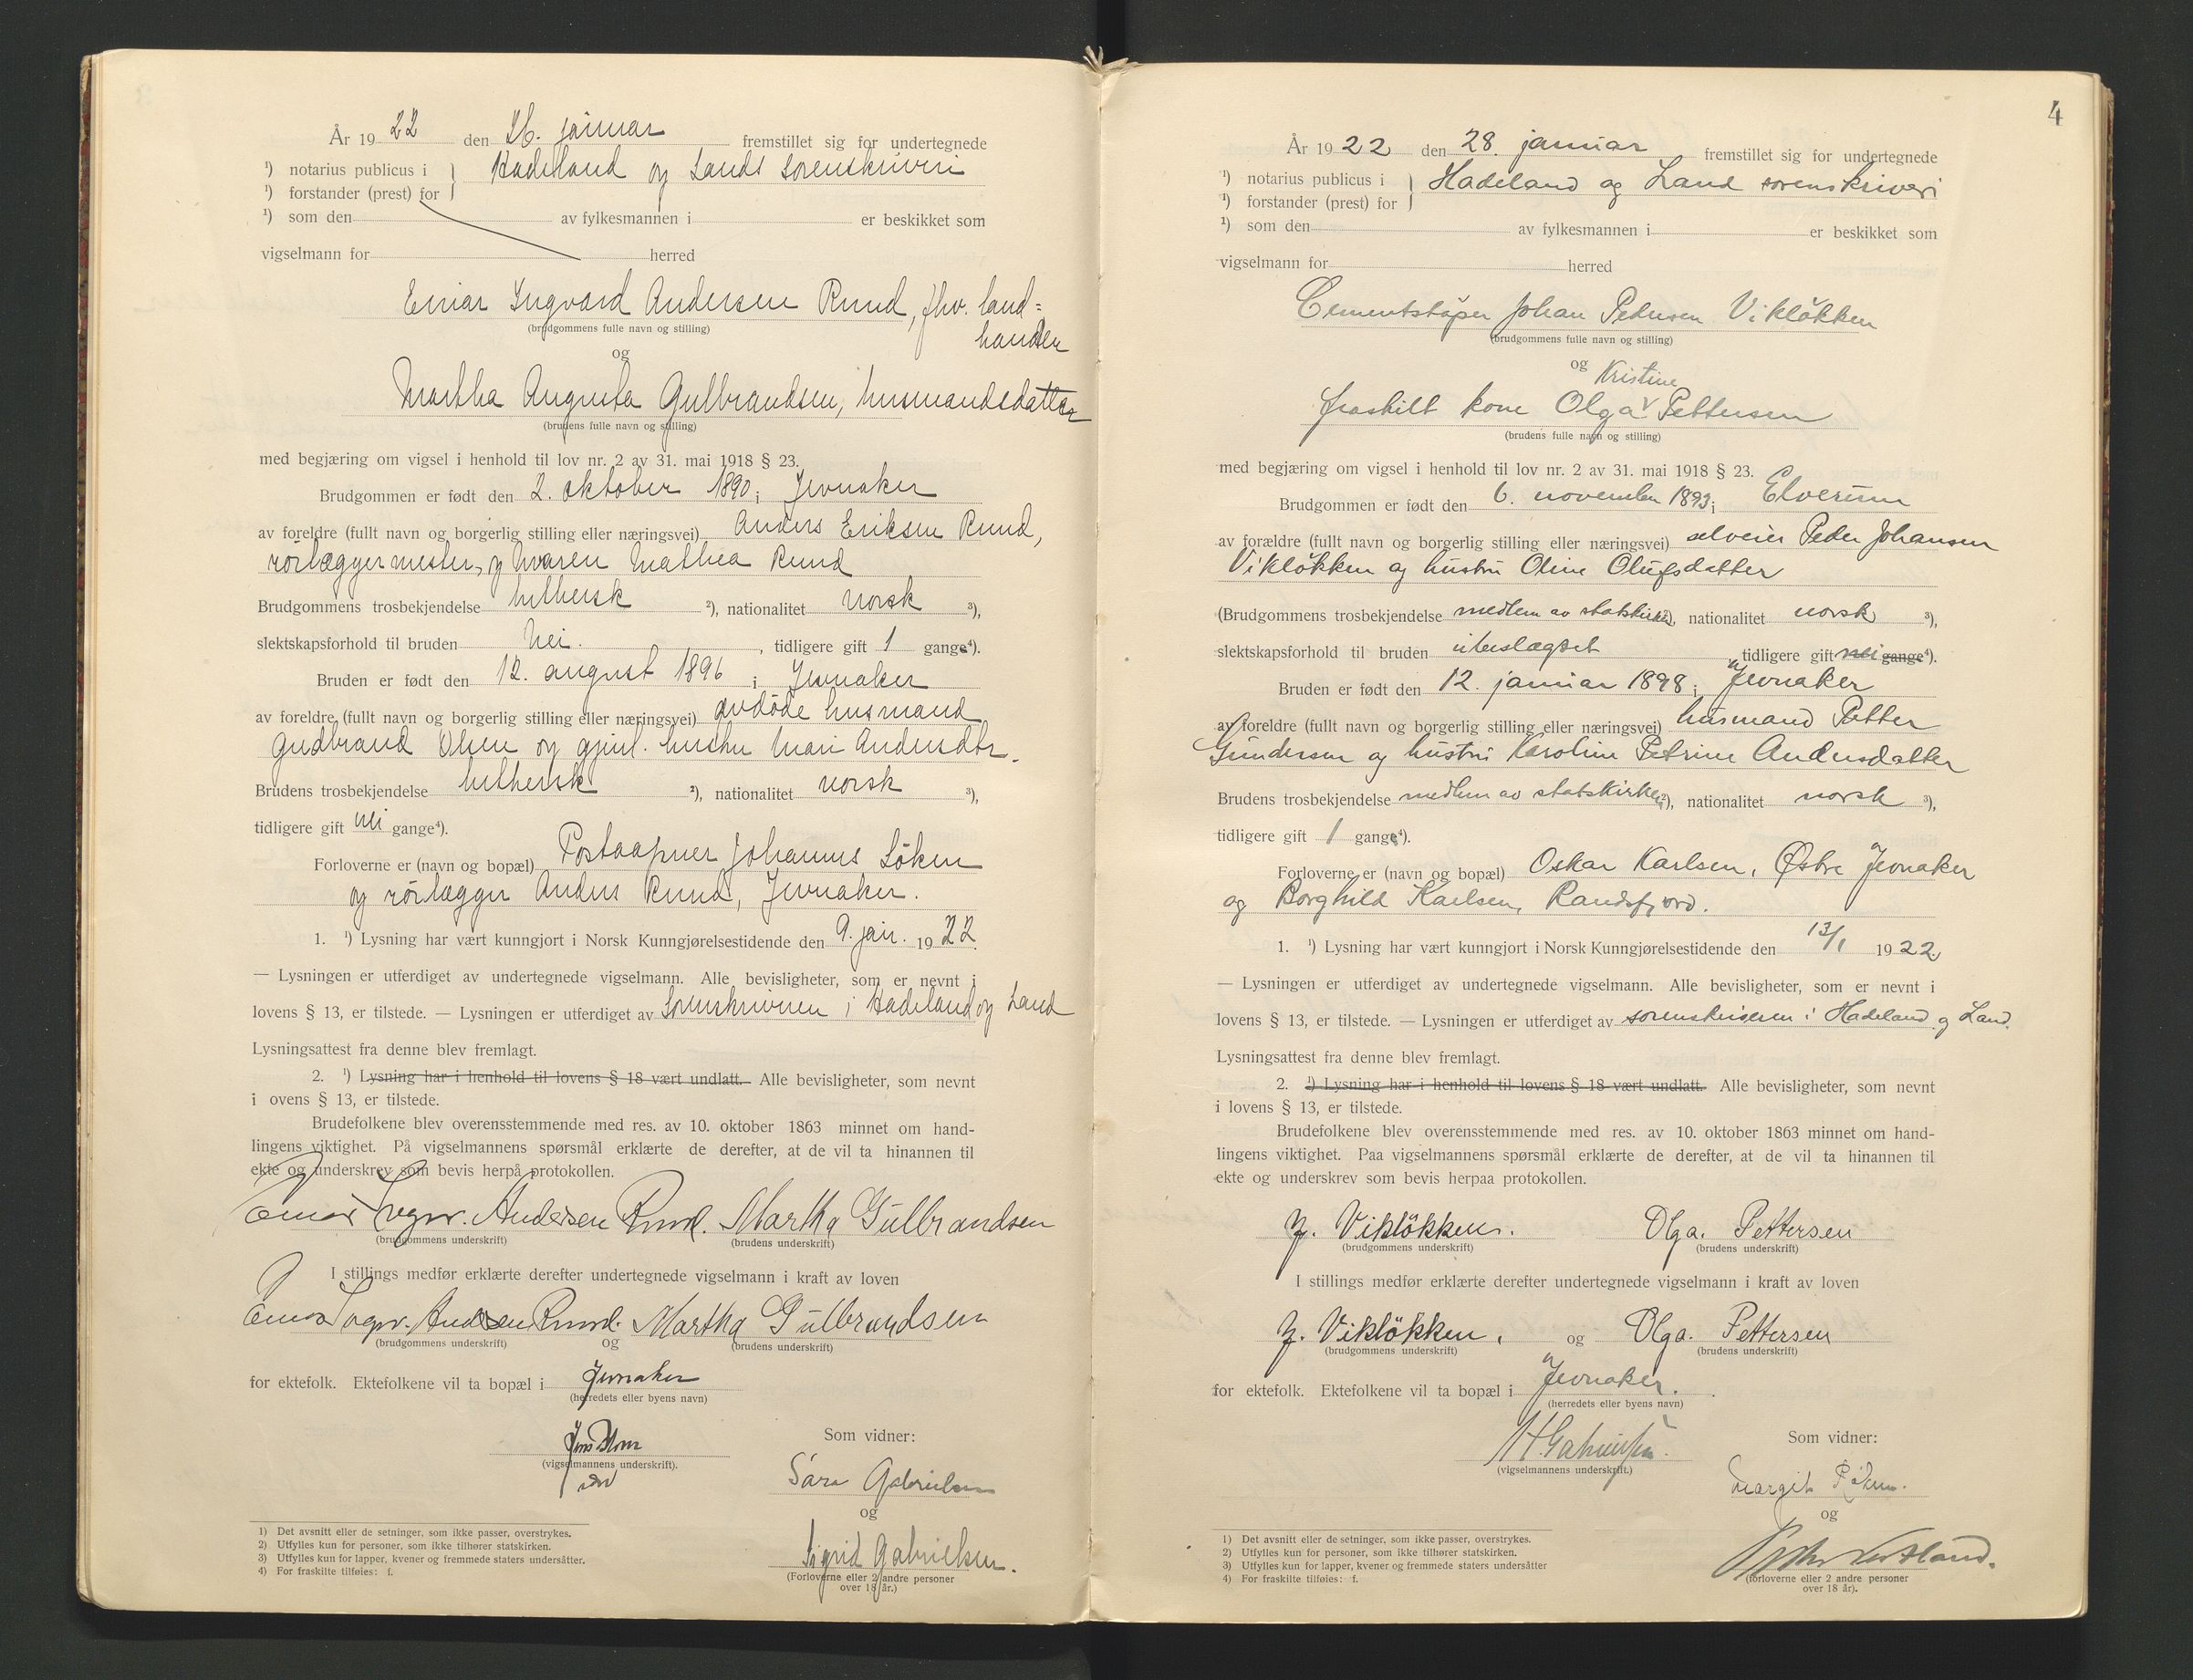 År 1922 den 26. januar fremstillet sig for undertegnede
¹) notarius publicus i } Hadeland og Lands sorenskriveri
¹) forstander (prest) for
¹) som den av fylkesmannen i er beskikket som
vigselmann for herred
Einar Ingvard Andersen Ruud, fhv. land=
handler
(brudgommens fulle navn og stilling)
og
Martha Augusta Gulbrandsen, husmandsdatter
(brudens fulle navn og stilling)
med begjæring om vigsel i henhold til lov nr. 2 av 31. mai 1918 § 23.
Brudgommen er født den 2. oktober 1890; Jevnaker
av foreldre (fullt navn og borgerlig stilling eller næringsvei) Anders Eriksen Ruud,
rörlæggermester, og Maren Mathea Ruud
Brudgommens trosbekjendelse luthersk ²), nationalitet norsk ³),
slektskapsforhold til bruden Nei. , tidligere gift 1 gange⁴).
Bruden er født den 12. august 1896 ; Jevnaker
av foreldre (fullt navn og borgerlig stilling eller næringsvei) avdöde husmand
Gudbrand Olsen og gjenl. hustru Mari Andersdtr.
Brudens trosbekjendelse luthersk ²), nationalitet norsk ³),
tidligere gift nei gange⁴).
Forloverne er (navn og bopæl) Postaapner Johannes Löken
og rörlægger Anders Ruud, Jevnaker.
1. ¹) Lysning har vært kunngjort i Norsk Kunngjørelsestidende den 9. jan. 1922.
— Lysningen er utferdiget av undertegnede vigselmann. Alle bevisligheter, som er nevnt i
lovens § 13, er tilstede. — Lysningen er utferdiget av Sorenskriveren i Hadeland og Land
Lysningsattest fra denne blev fremlagt.
2. ¹) Lysning har i henhold til lovens § 18 vært undlatt. Alle bevisligheter, som nevnt
i ovens § 13, er tilstede.
Brudefolkene blev overensstemmende med res. av 10. oktober 1863 minnet om hand-
lingens viktighet. På vigselmannens spørsmål erklærte de derefter, at de vil ta hinannen til
ekte og underskrev som bevis herpå protokollen.
Einar Ingv. Andersen Ruud. Martha Gulbrandsen
(brudgommens underskrift) (brudens underskrift)
I stillings medfør erklærte derefter undertegnede vigselmann i kraft av loven
Einar Ingv. Andersen Ruud. Martha Gulbrandsen
(brudgommens underskrift) og (brudens underskrift)
for ektefolk. Ektefolkene vil ta bopæl i Jevnaker
(herredets eller byens navn)
(vigselmannens underskrift).
Som vidner:
Sara Gabrielsen
og
Sigrid Gabrielsen.
(Forloverne eller 2 andre personer
over 18 år.)
1) Det avsnitt eller de setninger, som ikke passer, overstrykes.
2) Utfylles kun for personer, som ikke tilhører statskirken.
3) Utfylles kun for lapper, kvener og fremmede staters undersåtter.
4) For fraskilte tilføies: f.
4
År 1922 den 28. januar fremstillet sig for undertegnede
¹) notarius publicus i } Hadeland og Land sorenskriveri
¹) forstander (prest) for
¹) som den av fylkesmannen i er beskikket som
vigselmann for herred
Cementstöper Johan Pedersen Viklökken
(brudgommens fulle navn og stilling)
og
Kristine
fraskilt kone Olga ˅ Pettersen
(brudens fulle navn og stilling)
med begjæring om vigsel i henhold til lov nr. 2 av 31. mai 1918 § 23.
Brudgommen er født den 6. november 1893; Elverum
av forældre (fullt navn og borgerlig stilling eller næringsvei) selveier Peder Johansen
Viklökken og hustru Oline Olufsdatter
(Brudgommens trosbekjendelse medlem av statskirken ²), nationalitet norsk ³),
slektskapsforhold til bruden ubeslægtet , tidligere gift nei gange⁴).
Bruden er født den 12. januar 1898; Jevnaker
av foreldre (fullt navn og borgerlig stilling eller næringsvei) husmand Petter
Gundersen og hustru Karoline Petrine Andersdatter
Brudens trosbekjendelse medlem av statskirken ²), nationalitet norsk ³),
tidligere gift 1 gange⁴).
Forloverne er (navn og bopæl) Oskar Karlsen, Østre Jevnaker
og Borghild Karlsen, Randsfjord.
1. ¹) Lysning har vært kunngjort i Norsk Kunngjørelsestidende den 13/1 1922.
— Lysningen er utferdiget av undertegnede vigselmann. Alle bevisligheter, som er nevnt i
lovens § 13, er tilstede. — Lysningen er utferdiget av sorenskriveren i Hadeland og Land.
Lysningsattest fra denne blev fremlagt.
2. ¹) Lysning har i henhold til lovens § 18 vært undlatt. Alle bevisligheter, som nevnt
i lovens § 13, er tilstede.
Brudefolkene blev overensstemmende med res. av 10. oktober 1863 minnet om hand-
lingens viktighet. Paa vigselmannens spørsmål erklærte de derefter, at de vil ta hinannen til
ekte og underskrev som bevis herpaa protokollen.
J. Viklökken. Olga. Pettersen
(brudgommens underskrift) (brudens underskrift)
I stillings medfør erklærte derefter undertegnede vigselmann i kraft av loven
J. Viklökken. og Olga. Pettersen
(brudgommens underskrift) (brudens underskrift)
for ektefolk. Ektefolkene vil ta bopæl i Jevnaker.
(herredets eller byens navn)
(vigselmannens underskrift.)
Som vidner:
Margit
og
(forloverne eller 2 andre personer
over 18 år).
1) Det avsnitt eller de setninger, som ikke passer, overstrykes.
2) Utfylles kun for personer, som ikke tilhører statskirken.
3) Utfylles kun for lapper, kvener og fremmede staters undersåtter
4) For fraskilte tilføies: f.